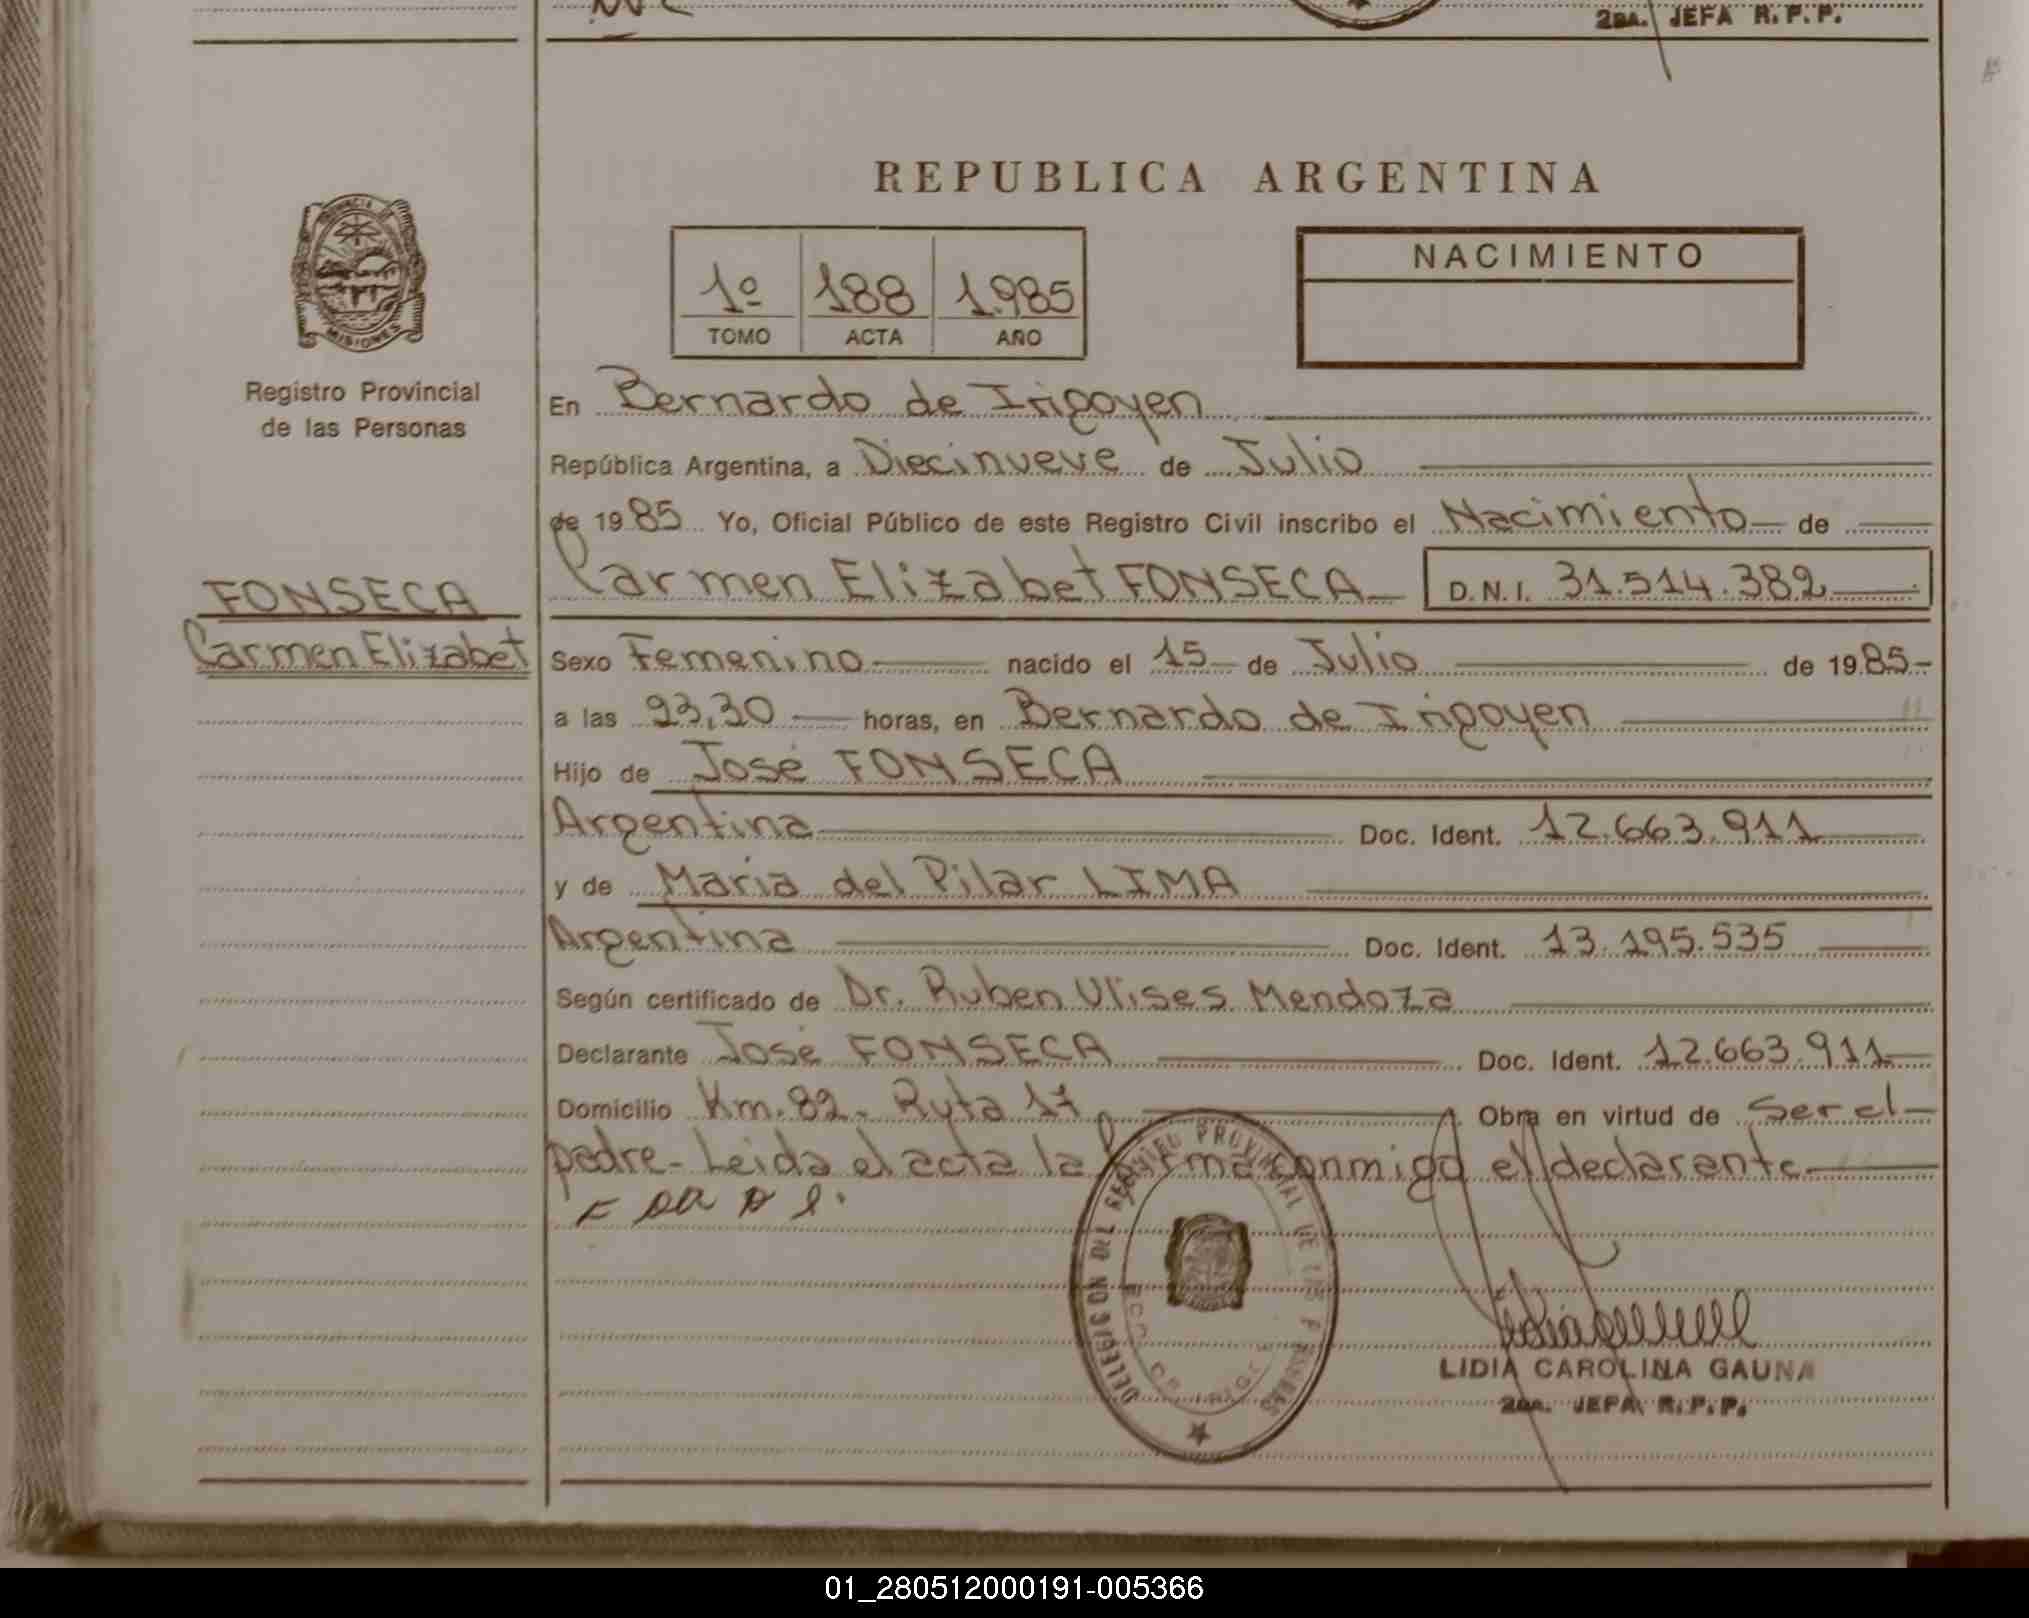 2da. JEFA R.P.P.
REPUBLICA ARGENTINA
PROVINCIA DE
MISIONES
Registro Provincial
de las Personas
1º 188 1.985
TOMO ACTA AÑO
NACIMIENTO
En Bernardo de Irigoyen
República Argentina, a Diecinueve de Julio
de 1985 Yo, Oficial Público de este Registro Civil inscribo el Nacimiento de
Carmen Elizabet FONSECA D.N.I. 31.514.382
FONSECA
Carmen Elizabet
Sexo Femenino nacido el 15 de Julio de 1985
a las 23,30 horas, en Bernardo de Irigoyen
Hijo de José FONSECA
Argentina Doc. Ident. 12.663.911
y de Maria del Pilar LIMA
Argentina Doc. Ident. 13.195.535
Según certificado de Dr. Ruben Ulises Mendoza
Declarante José FONSECA Doc. Ident. 12.663.911
Domicilio Km. 82 - Ruta 17 Obra en virtud de Ser el
padre - Leida el acta la firma conmigo el declarante
DELEGACION DEL REGISTRO PROVINCIAL DE LAS PERSONAS
LIDIA CAROLINA GAUNA
2da. JEFA R.P.P.
01_280512000191-005366